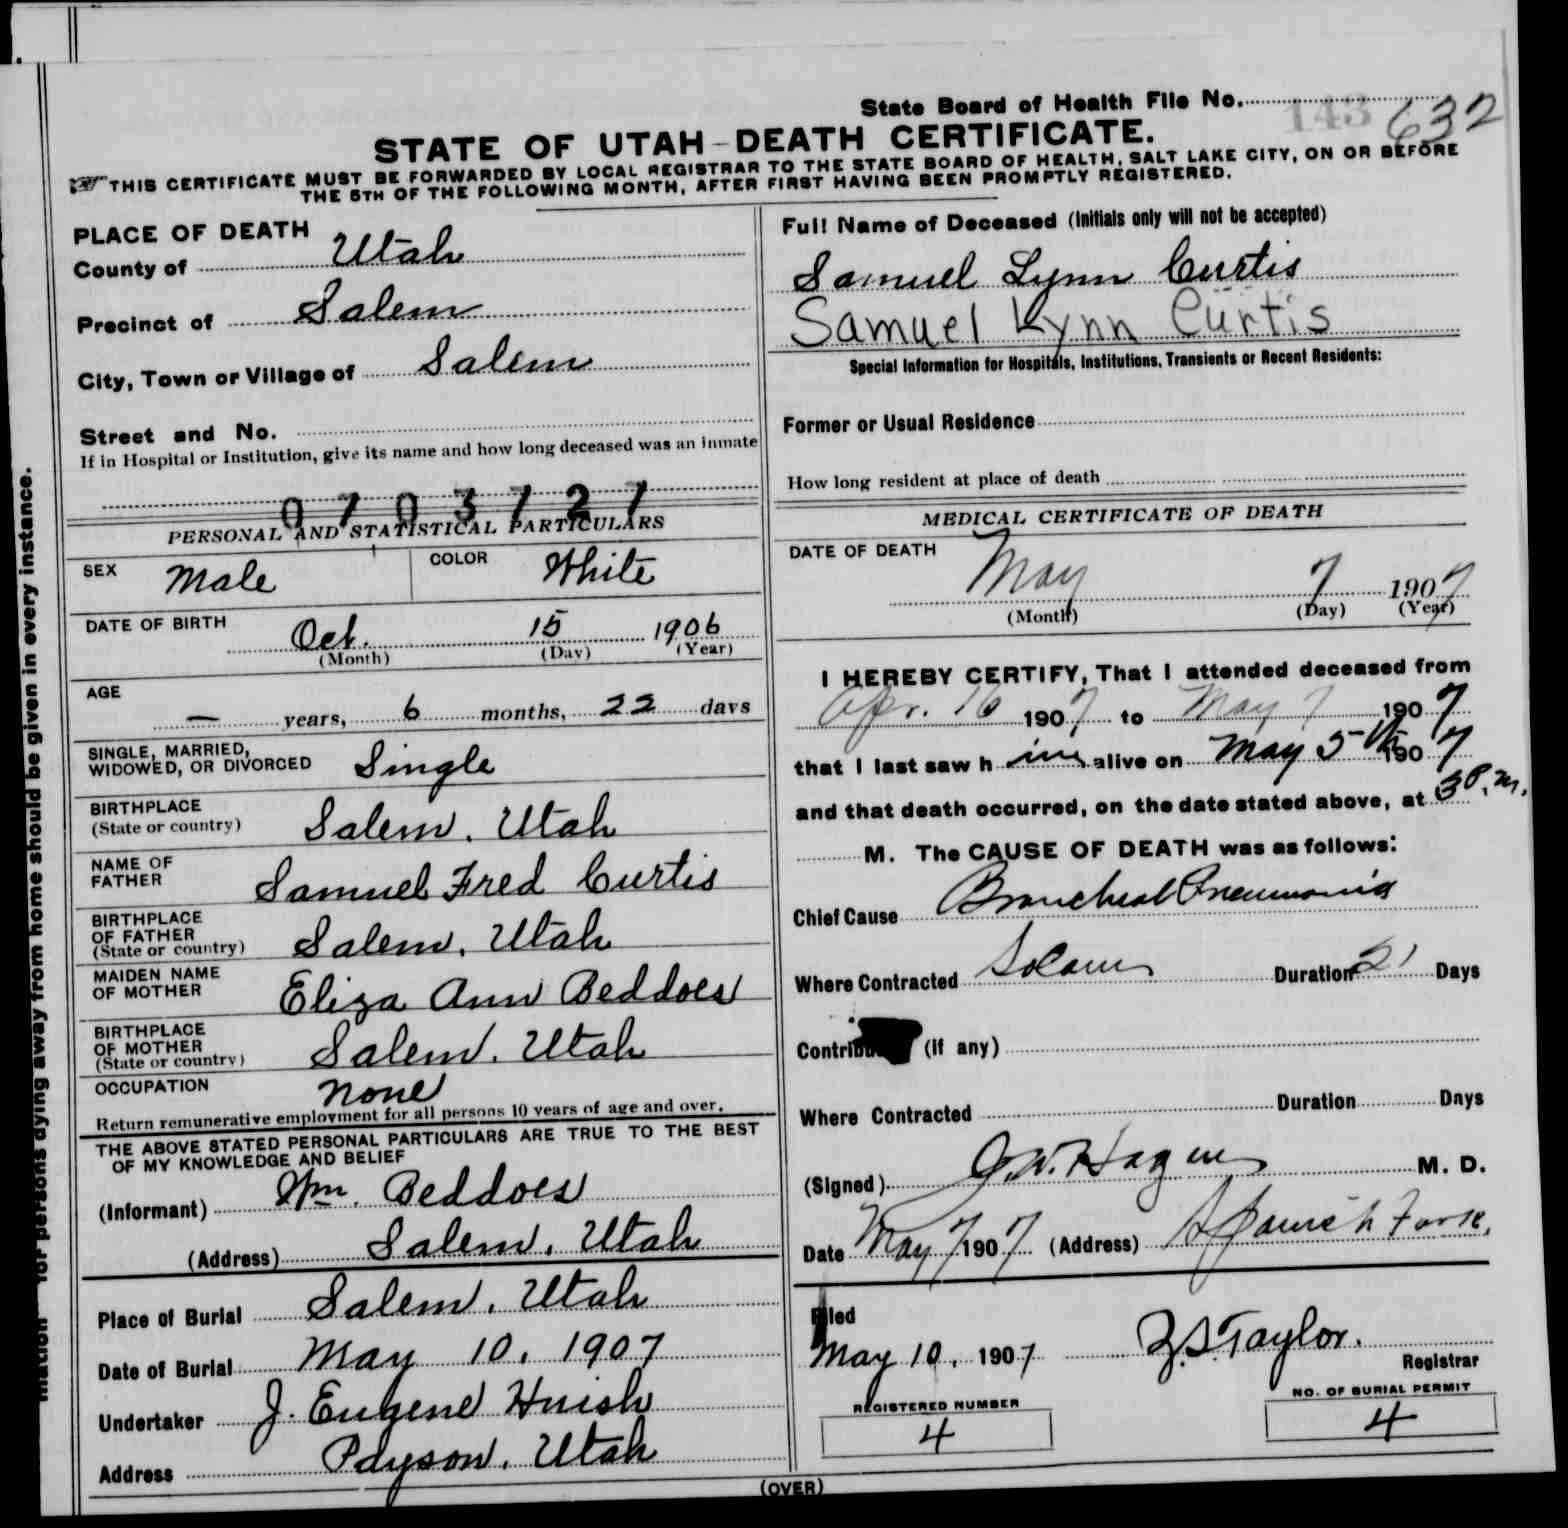 State Board of Health File No. 143 632
STATE OF UTAH-DEATH CERTIFICATE.
THIS CERTIFICATE MUST BE FORWARDED BY LOCAL REGISTRAR TO THE STATE BOARD OF HEALTH, SALT LAKE CITY, ON OR BEFORE
THE 5TH OF THE FOLLOWING MONTH, AFTER FIRST HAVING BEEN PROMPTLY REGISTERED.
PLACE OF DEATH
County of Utah
Precinct of Salem
City, Town or Village of Salem
Street and No.
If in Hospital or Institution, give its name and how long deceased was an inmate
0703727
PERSONAL AND STATISTICAL PARTICULARS
SEX Male COLOR White
DATE OF BIRTH Oct. 15 1906
(Month) (Day) (Year)
AGE
— years, 6 months, 22 days
SINGLE, MARRIED,
WIDOWED, OR DIVORCED Single
BIRTHPLACE
(State or country) Salem, Utah
NAME OF
FATHER Samuel Fred Curtis
BIRTHPLACE
OF FATHER
(State or country) Salem, Utah
MAIDEN NAME
OF MOTHER Eliza Ann Beddoes
BIRTHPLACE
OF MOTHER
(State or country) Salem, Utah
OCCUPATION None
Return remunerative employment for all persons 10 years of age and over.
THE ABOVE STATED PERSONAL PARTICULARS ARE TRUE TO THE BEST
OF MY KNOWLEDGE AND BELIEF
(Informant) Wm. Beddoes
(Address) Salem, Utah
Place of Burial Salem, Utah
Date of Burial May 10, 1907
Undertaker J. Eugene Huish
Address Payson, Utah
Full Name of Deceased (Initials only will not be accepted)
Samuel Lynn Curtis
Samuel Lynn Curtis
Special Information for Hospitals, Institutions, Transients or Recent Residents:
Former or Usual Residence
How long resident at place of death
MEDICAL CERTIFICATE OF DEATH
DATE OF DEATH
May 7 1907
(Month) (Day) (Year)
I HEREBY CERTIFY, That I attended deceased from
Apr. 16 1907 to May 7 1907
that I last saw him alive on May 5th 1907
and that death occurred, on the date stated above, at 3 P.M.
M. The CAUSE OF DEATH was as follows:
Chief Cause Bronchial Pneumonia
Where Contracted Salem Duration 21 Days
(If any)
Where Contracted Duration Days
(Signed) J.W. Hagen M. D.
Date May 7 1907 (Address) Spanish Fork,
Filed
May 10, 1907 Z.S. Taylor.
Registrar
REGISTERED NUMBER
4
NO. OF BURIAL PERMIT
4
(OVER)
for persons dying away from home should be given in every instance.